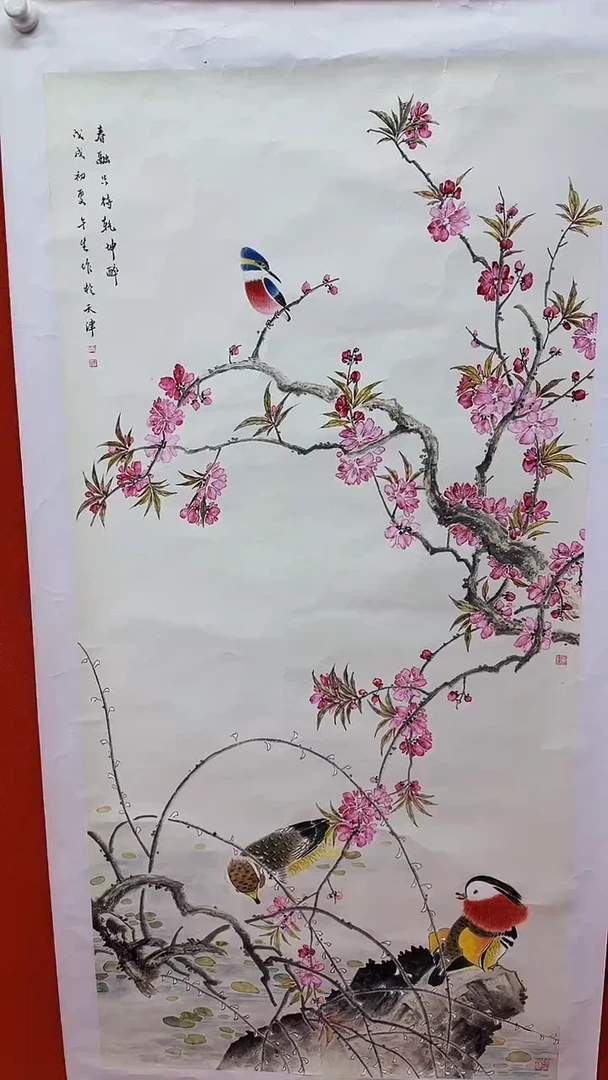 春融只待乾坤醉
戊戌初夏午生作於天津